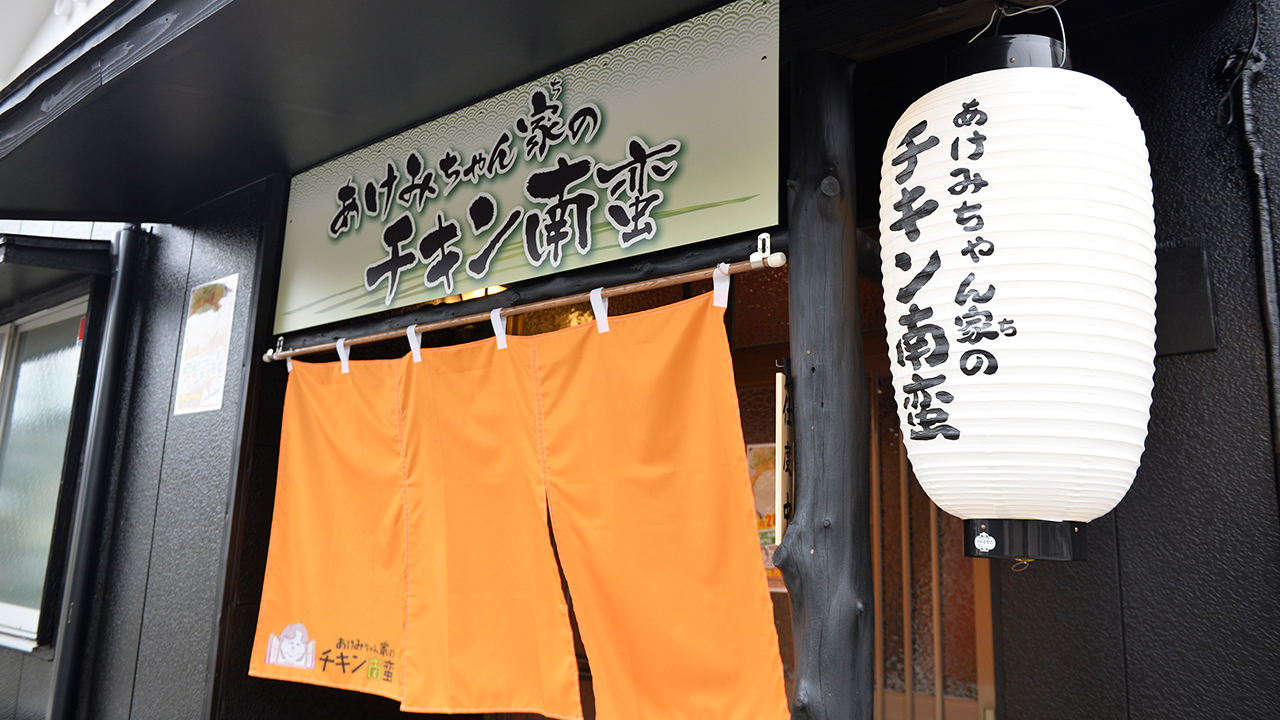 あけみちゃん家の
ち
チキン南蛮
あけみちゃん家の
ち
チキン南蛮
あけみちゃん家の
チキン南蛮